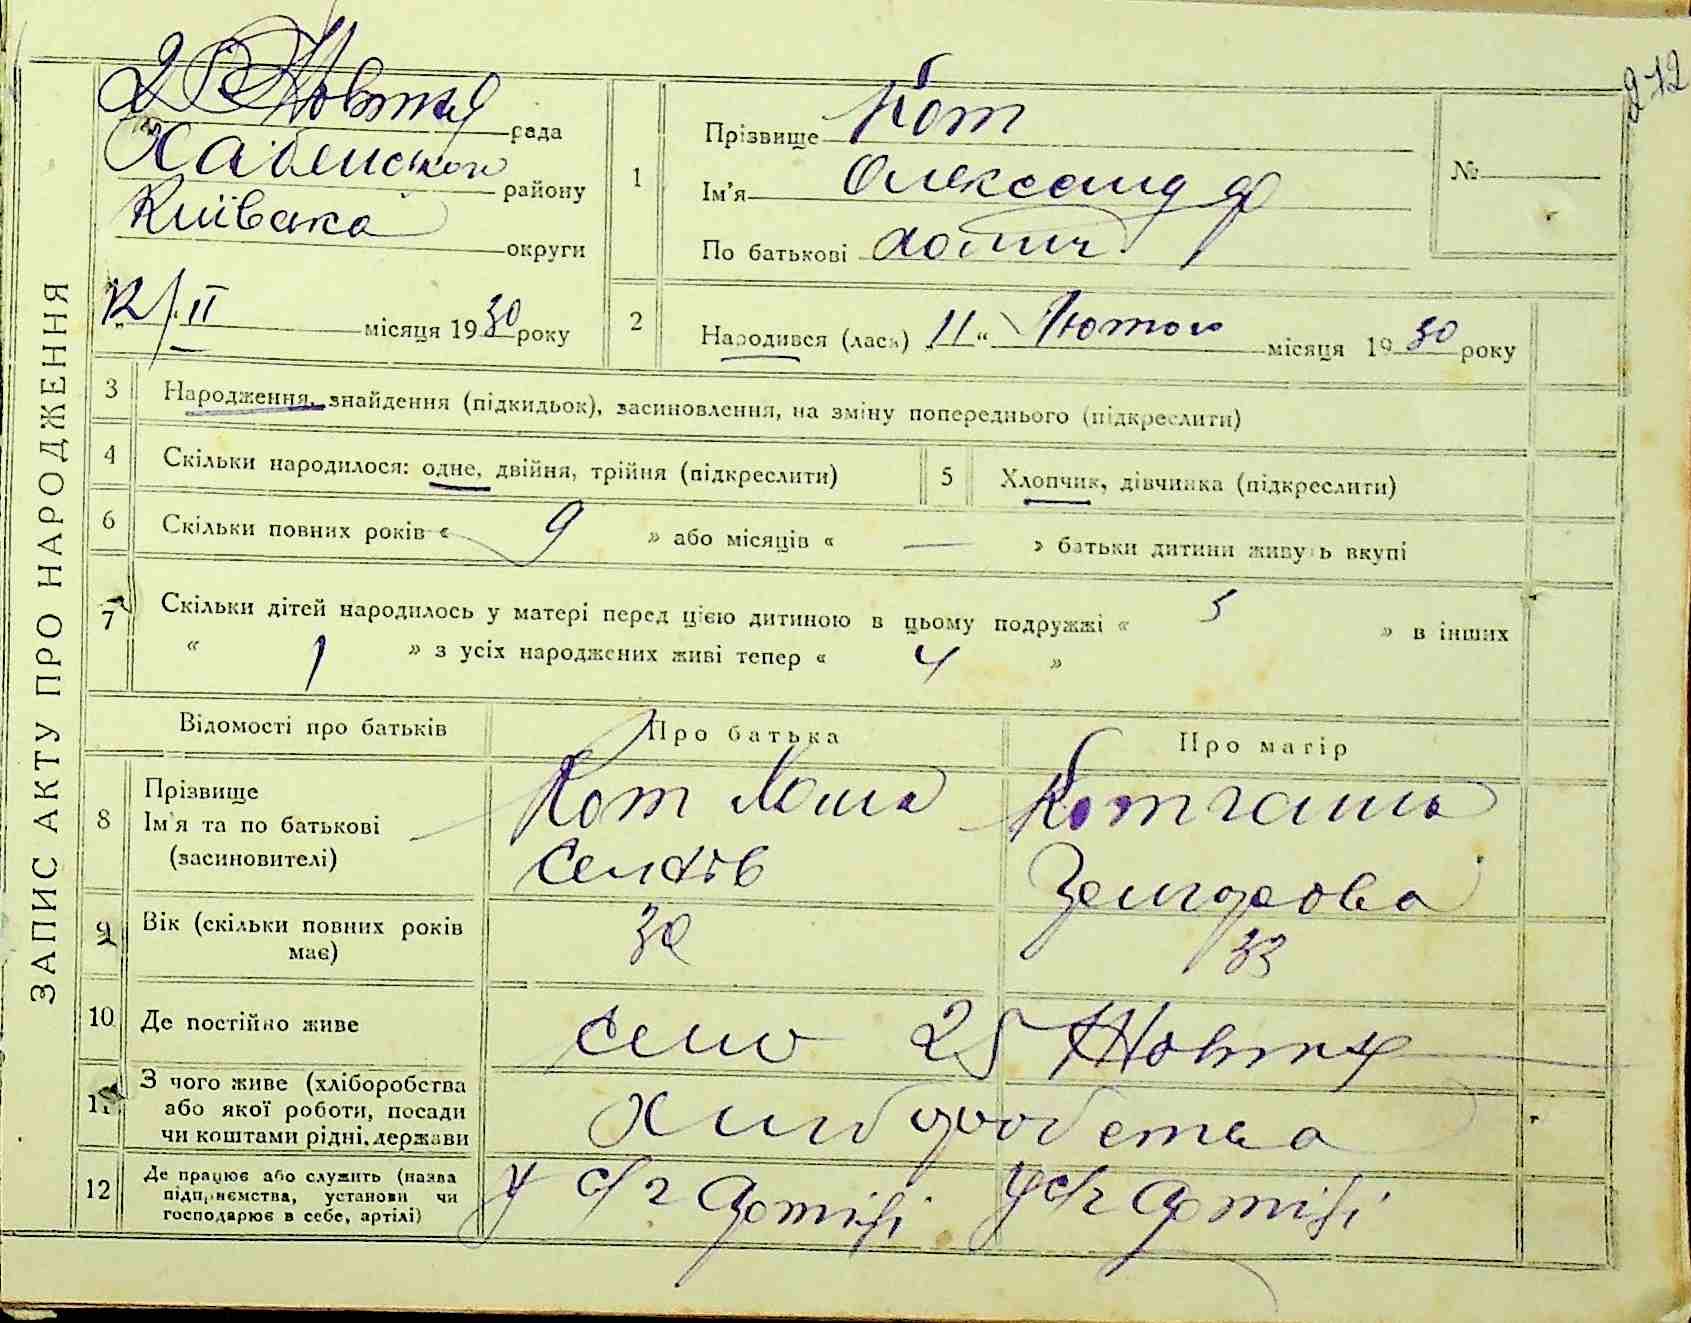 212
ЗАПИС АКТУ ПРО НАРОДЖЕННЯ
25 Жовтня рада
Хабенського району
Київська округи
12/II місяця 1930 року
1 Прізвище Кот
Ім'я Олександр
По батькові
№
2 Народився (лася) 11 " Лютого місяця 1930 року
3 Народження, знайдення (підкидьок), засиновлення, на зміну попереднього (підкреслити)
4 Скільки народилося: одне, двійня, трійня (підкреслити)
5 Хлопчик, дівчинка (підкреслити)
6 Скільки повних років « 9 » або місяців « — » батьки дитини живуть вкупі
7 Скільки дітей народилось у матері перед цією дитиною в цьому подружжі « 3 » в інших
« 1 » з усіх народжених живі тепер « 4 »
Відомості про батьків Про батька Про матір
8 Прізвище
Ім'я та по батькові
(засиновителі)
Кот
Кот
9 Вік (скільки повних років
має)
33
10 Де постійно живе село 25 Жовтня
11 З чого живе (хліборобства
або якої роботи, посади
чи коштами рідні, держави
Хліборобства
12 Де працює або служить (назва
підприємства, установи чи
господарює в себе, артілі)
у с/г Артілі у с/г Артілі